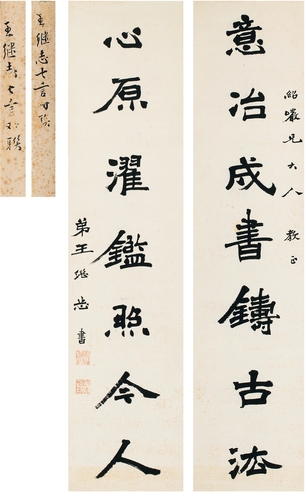 意冶成書鑄古法
紹巖兄大人教正
心原濯鑑照今人
弟王继志書
王继志七言对联
王继志七言对联